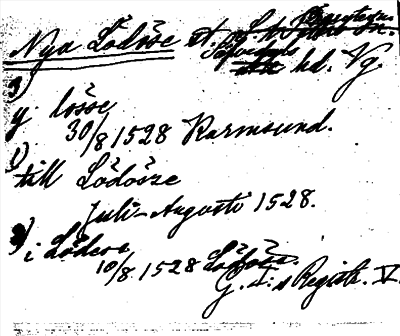 Nya Lödöse st. og. L.
Sävedals hd. Vg.
3)
y. lösse
30/8 1528 Karmsund.
1)
till Lödosze
Juli-Augusti 1528.
2) i Lödese
10/8 1528 Lödöse.
G. I:s Registr. V.